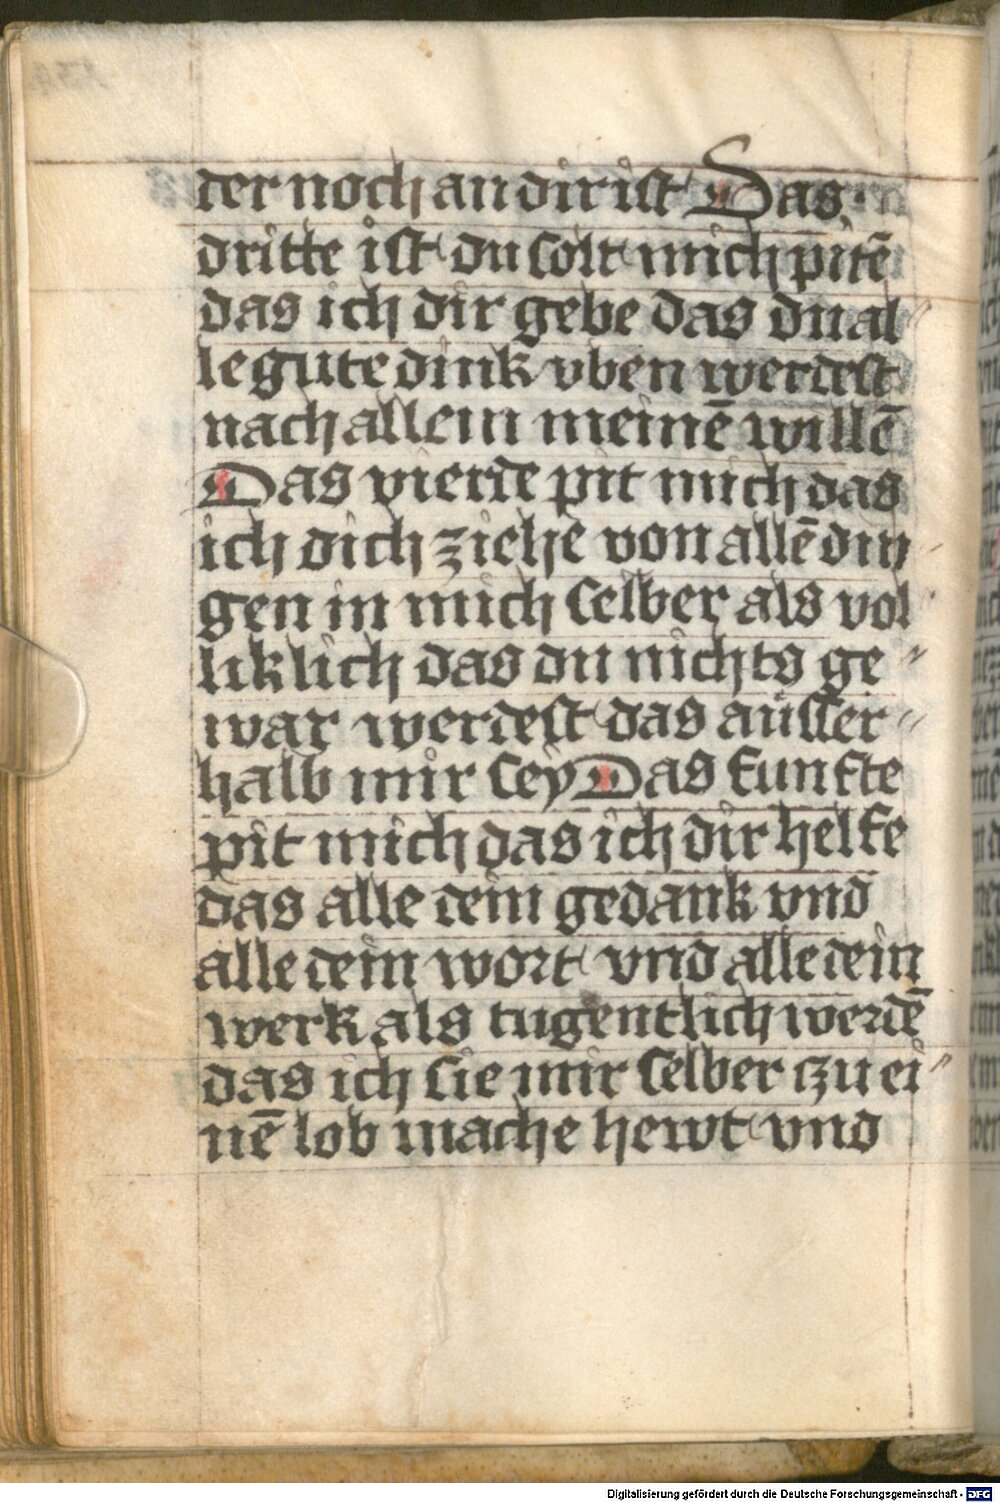 der noch an dir ist Das
dritte ist du solt mich pitē
das ich dir gebe das du al
le gute dink vben werdest
nach allem meinē willē
Das vierde pit mich das
ich dich ziehe von allē din
gen in mich selber als vol
liklich das du nichts ge
war werdest das ausser
halb mir sey Das funfte
pit mich das ich dir helfe
das alle dein gedank vnd
alle dein wort vnd alle dein
werk als tugentlich werdē
das ich sie mir selber czu ei
nē lob mache hewt vnd
Digitalisierung gefördert durch die Deutsche Forschungsgemeinschaft - DFG